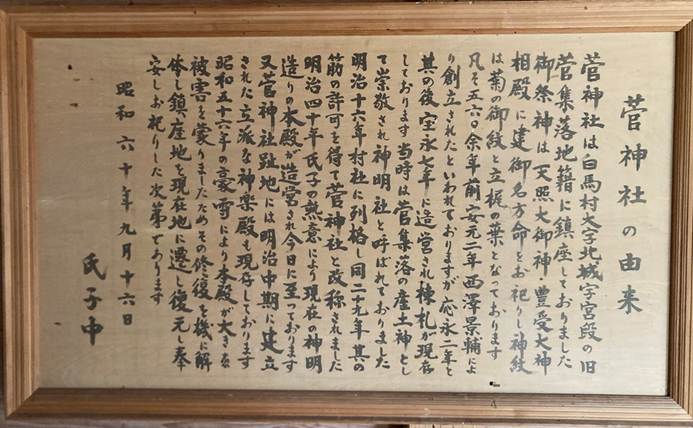 菅神社の由来
菅神社は白馬村大字北城字宮段の旧
菅集落地籍に鎮座しておりました
御祭神は天照大御神 豊受大神
相殿に建御名方命をお祀りし神紋
は菊の御紋と立梶の葉となっております
凡そ五六〇余年前安元二年西澤景輔によ
り創立されたといわれておりますが応永二年と
其の後宝永七年に造営され棟札が現存
しております 当時は菅集落の産土神とし
て崇敬され神明社と呼ばれておりました
明治十六年村社に列格し同二十九年其の
筋の許可を得て菅神社と改称されました
明治四十年氏子の熱意により現在の神明
造りの本殿が造営され今日に至っております
又菅神社趾地には明治中期に建立
された立派な神楽殿も現存しております
昭和五十六年の豪雪により本殿が大きな
被害を蒙りましたためその修復を機に解
体し鎮座地を現在地に遷し復元し奉
安しお祀りした次第であります
昭和六十年九月十六日
氏子中